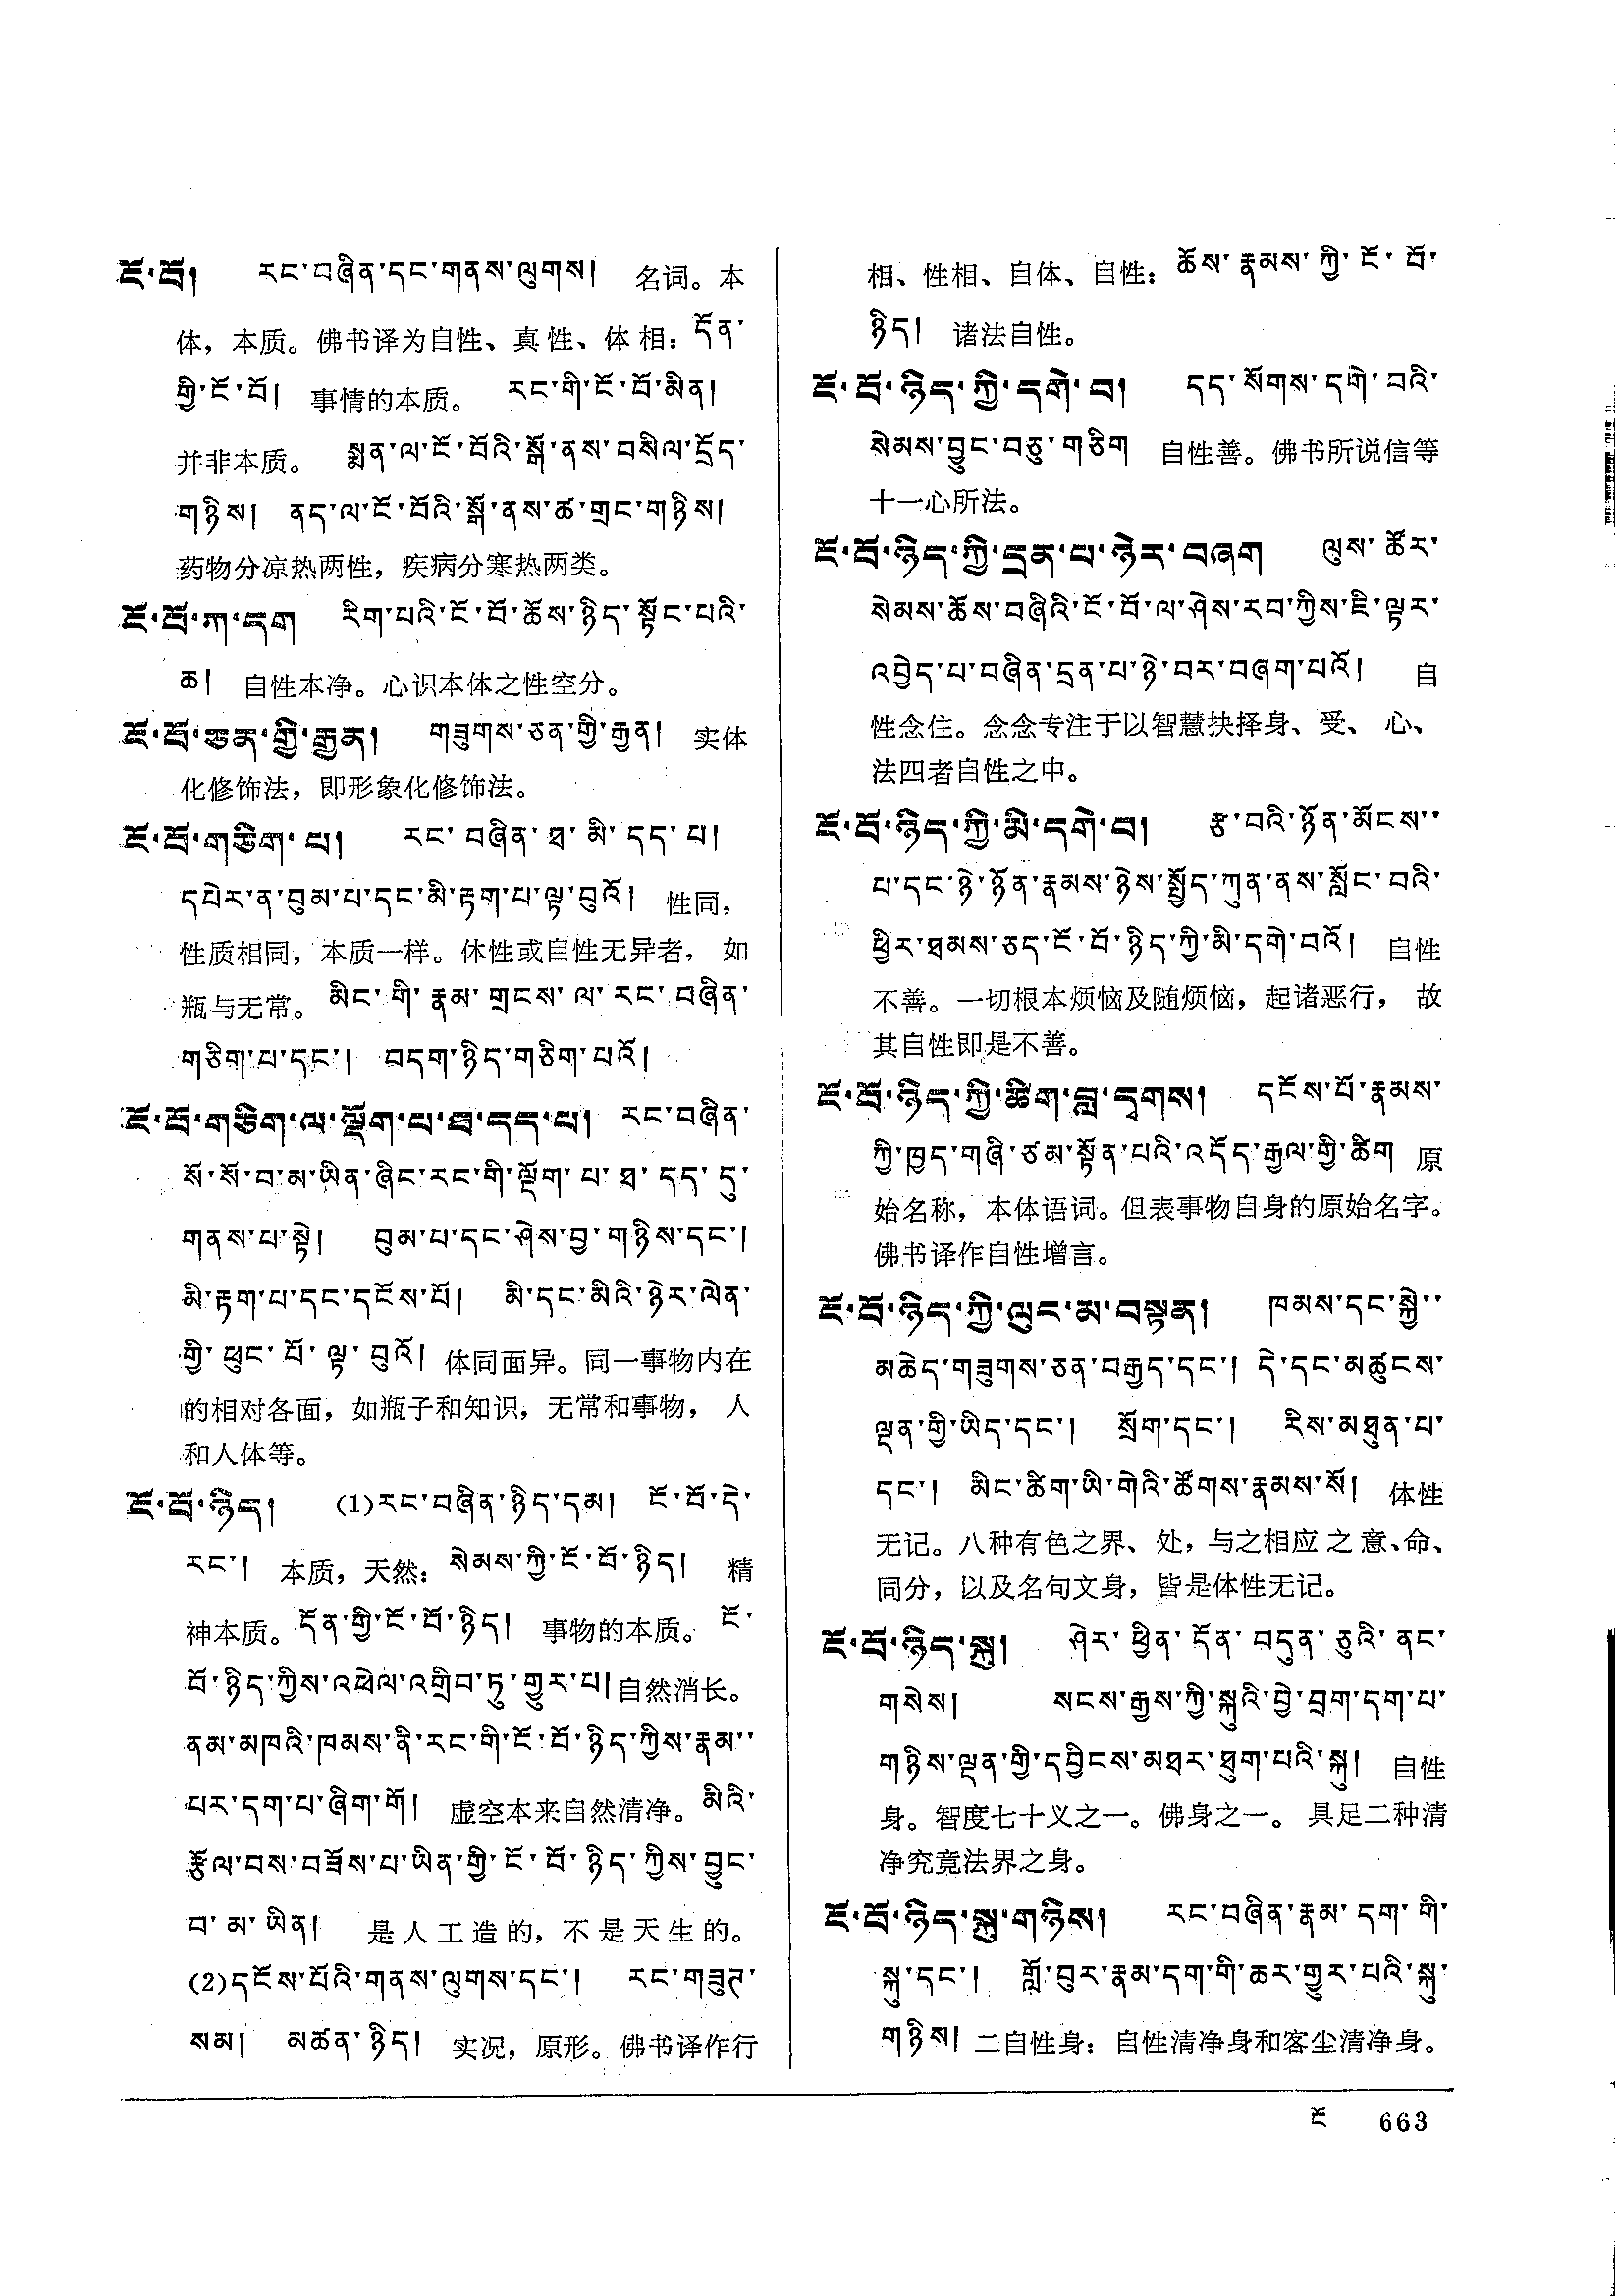 ངོ་བོ།  རང་བཞིན་དང་གནས་ལུགས།  名词。本
体，本质。佛书译为自性、真性、体相：དོན་
གྱི་ངོ་བོ།  事情的本质。  རང་གི་ངོ་བོ་མིན།
并非本质。  སྨན་ལ་ངོ་བོའི་སྒོ་ནས་བསིལ་དྲོད་
གཉིས།  ནད་ལ་ངོ་བོའི་སྒོ་ནས་ཚ་གྲང་གཉིས།
药物分凉热两性，疾病分寒热两类。
ངོ་བོ་ཀ་དག  རིག་པའི་ངོ་བོ་ཆོས་ཉིད་སྟོང་པའི་
ཆ།  自性本净。心识本体之性空分。
ངོ་བོ་ཅན་གྱི་རྒྱན།  གཟུགས་ཅན་གྱི་རྒྱན།  实体
化修饰法，即形象化修饰法。
ངོ་བོ་གཅིག་པ།  རང་བཞིན་ཐ་མི་དད་པ།
དཔེར་ན་བུམ་པ་དང་མི་རྟག་པ་ལྟ་བུའོ།  性同，
性质相同，本质一样。体性或自性无异者，如
瓶与无常。མིང་གི་རྣམ་གྲངས་ལ་རང་བཞིན་
གཅིག་པ་དང་།  བདག་ཉིད་གཅིག་པའོ།
ངོ་བོ་གཅིག་ལ་ལྡོག་པ་ཐ་དད་པ།  རང་བཞིན་
སོ་སོ་བ་མ་ཡིན་ཞིང་རང་གི་ལྡོག་པ་ཐ་དད་དུ་
གནས་པ་སྟེ།  བུམ་པ་དང་ཤེས་བྱ་གཉིས་དང་།
མི་རྟག་པ་དང་དངོས་པོ།  མི་དང་མིའི་ཉེར་ལེན་
གྱི་ཕུང་པོ་ལྟ་བུའོ།  体同面异。同一事物内在
的相对各面，如瓶子和知识，无常和事物，人
和人体等。
ངོ་བོ་ཉིད།  (1)རང་བཞིན་ཉིད་དམ།  ངོ་བོ་དེ་
རང་།  本质，天然：སེམས་ཀྱི་ངོ་བོ་ཉིད།  精
神本质。དོན་གྱི་ངོ་བོ་ཉིད།  事物的本质。ངོ་
བོ་ཉིད་ཀྱིས་འཕེལ་འགྲིབ་ཏུ་གྱུར་པ།自然消长。
ནམ་མཁའི་ཁམས་ནི་རང་གི་ངོ་བོ་ཉིད་ཀྱིས་རྣམ་་
པར་དག་པ་ཞིག་གོ།  虚空本来自然清净。མིའི་
རྩོལ་བས་བཟོས་པ་ཡིན་གྱི་ངོ་བོ་ཉིད་ཀྱིས་བྱུང་
བ་མ་ཡིན།  是人工造的，不是天生的。
(2)དངོས་པོའི་གནས་ལུགས་དང་།  རང་གཟུཊ་
སམ།  མཚན་ཉིད།  实况，原形。佛书译作行
相、性相、自体、自性：ཆོས་རྣམས་ཀྱི་ངོ་བོ་
ཉིད།  诸法自性。
ངོ་བོ་ཉིད་ཀྱི་དགེ་བ།  དད་སོགས་དགེ་བའི་
སེམས་བྱུང་བཅུ་གཅིག  自性善。佛书所说信等
十一心所法。
ངོ་བོ་ཉིད་ཀྱི་དྲན་པ་ཉེར་བཞག  ལུས་ཚོར་
སེམས་ཆོས་བཞིའི་ངོ་བོ་ལ་ཤེས་རབ་ཀྱིས་ཇི་ལྟར་
འབྱེད་པ་བཞིན་དྲན་པ་ཉེ་བར་བཞག་པའོ།  自
性念住。念念专注于以智慧抉择身、受、心、
法四者自性之中。
ངོ་བོ་ཉིད་ཀྱི་མི་དགེ་བ།  རྩ་བའི་ཉོན་མོངས་་
པ་དང་ཉེ་ཉོན་རྣམས་ཉེས་སྤྱོད་ཀུན་ནས་སློང་བའི་
ཕྱིར་ཐམས་ཅད་ངོ་བོ་ཉིད་ཀྱི་མི་དགེ་བའོ།  自性
不善。一切根本烦恼及随烦恼，起诸恶行，故
其自性即是不善。
ངོ་བོ་ཉིད་ཀྱི་ཚིག་བླ་དྭགས།  དངོས་པོ་རྣམས་
ཀྱི་ཁྱད་གཞི་ཙམ་སྟོན་པའི་འདོད་རྒྱལ་གྱི་ཚིག  原
始名称，本体语词。但表事物自身的原始名字。
佛书译作自性增言。
ངོ་བོ་ཉིད་ཀྱི་ལུང་མ་བསྟན།  ཁམས་དང་སྐྱེ་་
མཆེད་གཟུགས་ཅན་བརྒྱད་དང་།  དེ་དང་མཚུངས་
ལྡན་གྱི་ཡིད་དང་།  སྲོག་དང་།  རིས་མཐུན་པ་
དང་།  མིང་ཚིག་ཡི་གེའི་ཚོགས་རྣམས་སོ།  体性
无记。八种有色之界、处，与之相应之意、命、
同分，以及名句文身，皆是体性无记。
ངོ་བོ་ཉིད་སྐུ།  ཤེར་ཕྱིན་དོན་བདུན་ཅུའི་ནང་
གསེས།  སངས་རྒྱས་ཀྱི་སྐུའི་བྱེ་བྲག་དག་པ་
གཉིས་ལྡན་གྱི་དབྱིངས་མཐར་ཐུག་པའི་སྐུ།  自性
身。智度七十义之一。佛身之一。具足二种清
净究竟法界之身。
ངོ་བོ་ཉིད་སྐུ་གཉིས།  རང་བཞིན་རྣམ་དག་གི་
སྐུ་དང་།  གློ་བུར་རྣམ་དག་གི་ཆར་གྱུར་པའི་སྐུ་
གཉིས།  二自性身：自性清净身和客尘清净身。
ངོ  663